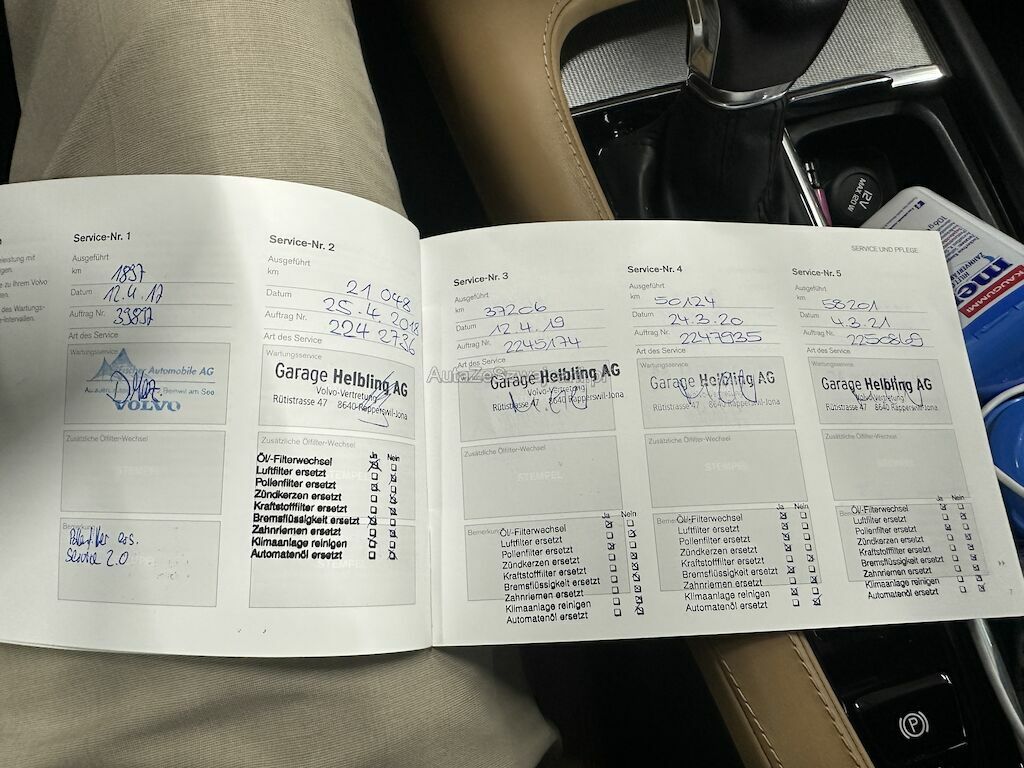 Service-Nr. 1
Ausgeführt
km 1897
Datum 12.4.17
Auftrag Nr. 33897
Art des Service
Wartungsservice
Automobile AG
VOLVO
Zusätzliche Ölfilter-Wechsel
STEMPEL
Pollenfilter ers.
Service 2.0
Service-Nr. 2
Ausgeführt
km 21 048
Datum 25.4.2018
Auftrag Nr. 224 2736
Art des Service
Wartungsservice
Garage Helbling AG
Volvo-Vertretung
Rütistrasse 47 8640 Rapperswil-Jona
Zusätzliche Ölfilter-Wechsel
Ja Nein
Öl-/Filterwechsel
Luftfilter ersetzt
Pollenfilter ersetzt
Zündkerzen ersetzt
Kraftstofffilter ersetzt
Bremsflüssigkeit ersetzt
Zahnriemen ersetzt
Klimaanlage reinigen
Automatenöl ersetzt
SERVICE UND PFLEGE
Service-Nr. 3
Ausgeführt
km 37206
Datum 12.4.19
Auftrag Nr. 2245174
Art des Service
Garage Helbling AG
Volvo-Vertretung
Rütistrasse 47 8640 Rapperswil-Jona
Zusätzliche Ölfilter-Wechsel
Ja Nein
Öl-/Filterwechsel
Luftfilter ersetzt
Pollenfilter ersetzt
Zündkerzen ersetzt
Kraftstofffilter ersetzt
Bremsflüssigkeit ersetzt
Zahnriemen ersetzt
Klimaanlage reinigen
Automatenöl ersetzt
Service-Nr. 4
Ausgeführt
km 50124
Datum 24.3.20
Auftrag Nr. 2247935
Art des Service
Wartungsservice
Garage Helbling AG
Volvo-Vertretung
Rütistrasse 47 8640 Rapperswil-Jona
Zusätzliche Ölfilter-Wechsel
STEMPEL
Ja Nein
Öl-/Filterwechsel
Luftfilter ersetzt
Pollenfilter ersetzt
Zündkerzen ersetzt
Kraftstofffilter ersetzt
Bremsflüssigkeit ersetzt
Zahnriemen ersetzt
Klimaanlage reinigen
Automatenöl ersetzt
Service-Nr. 5
Ausgeführt
km 58201
Datum 4.3.21
Auftrag Nr. 2250869
Art des Service
Wartungsservice
Garage Helbling AG
Volvo-Vertretung
Rütistrasse 47 8640 Rapperswil-Jona
Zusätzliche Ölfilter-Wechsel
STEMPEL
Ja Nein
Öl-/Filterwechsel
Luftfilter ersetzt
Pollenfilter ersetzt
Zündkerzen ersetzt
Kraftstofffilter ersetzt
Bremsflüssigkeit ersetzt
Zahnriemen ersetzt
Klimaanlage reinigen
Automatenöl ersetzt
7
12V
MAX.120W
KAUGUMMI